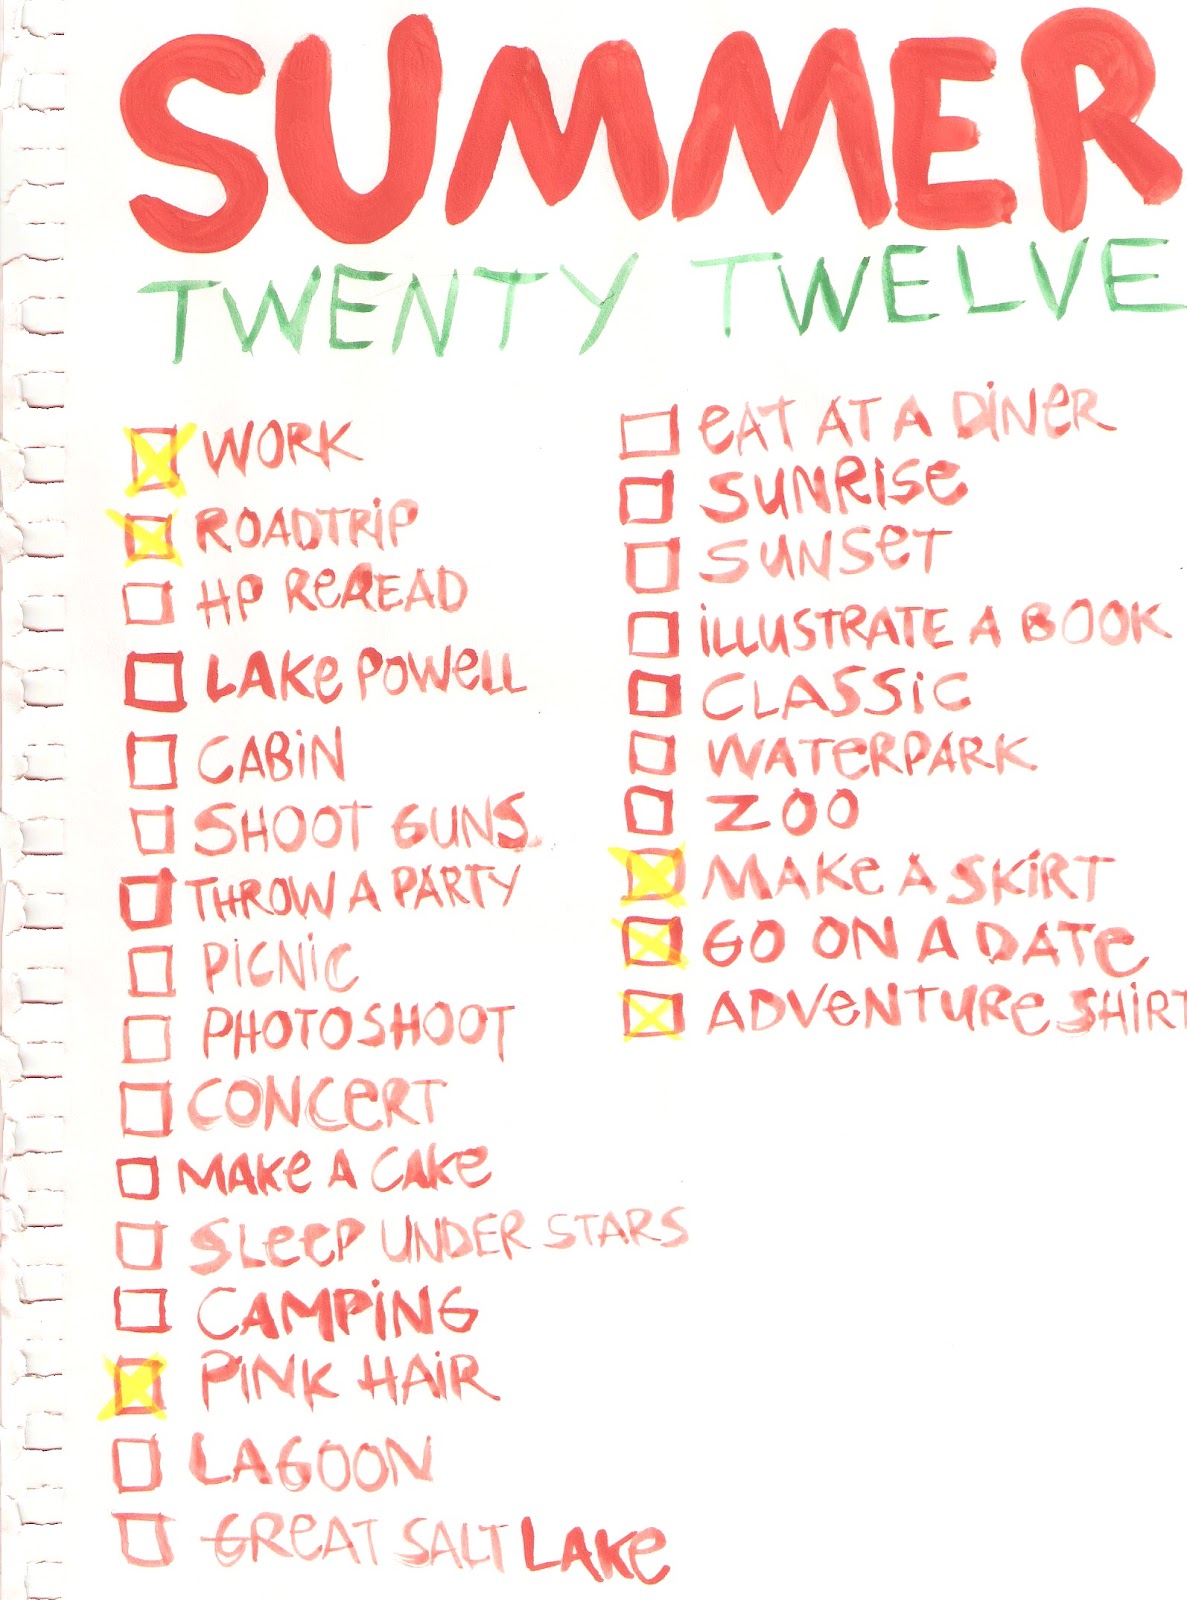 SUMMER
TWENTY TWELVE
WORK
ROADTRIP
HP REREAD
LAKE POWELL
CABIN
SHOOT GUNS
THROW A PARTY
PICNIC
PHOTOSHOOT
CONCERT
MAKE A CAKE
SLEEP UNDER STARS
CAMPING
PINK HAIR
LAGOON
GREAT SALT LAKE
EAT AT A DINER
SUNRISE
SUNSET
ILLUSTRATE A BOOK
CLASSIC
WATERPARK
ZOO
MAKE A SKIRT
GO ON A DATE
ADVENTURE SHIRT